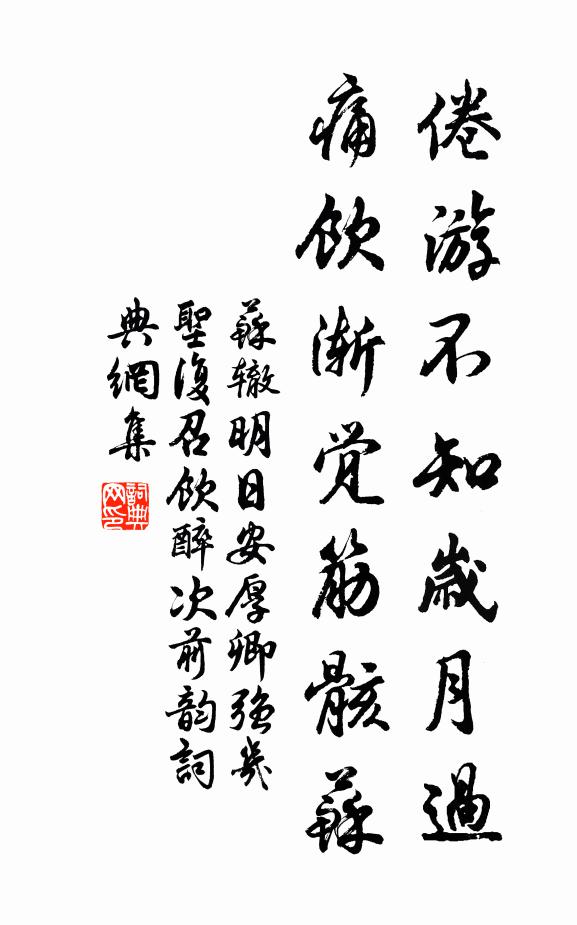 倦游不知歲月過
痛飲漸覺筋骸蘇
蘇轍明日安厚卿強幾
聖復召飲醉次前韵詞
典網集
詞典
网印